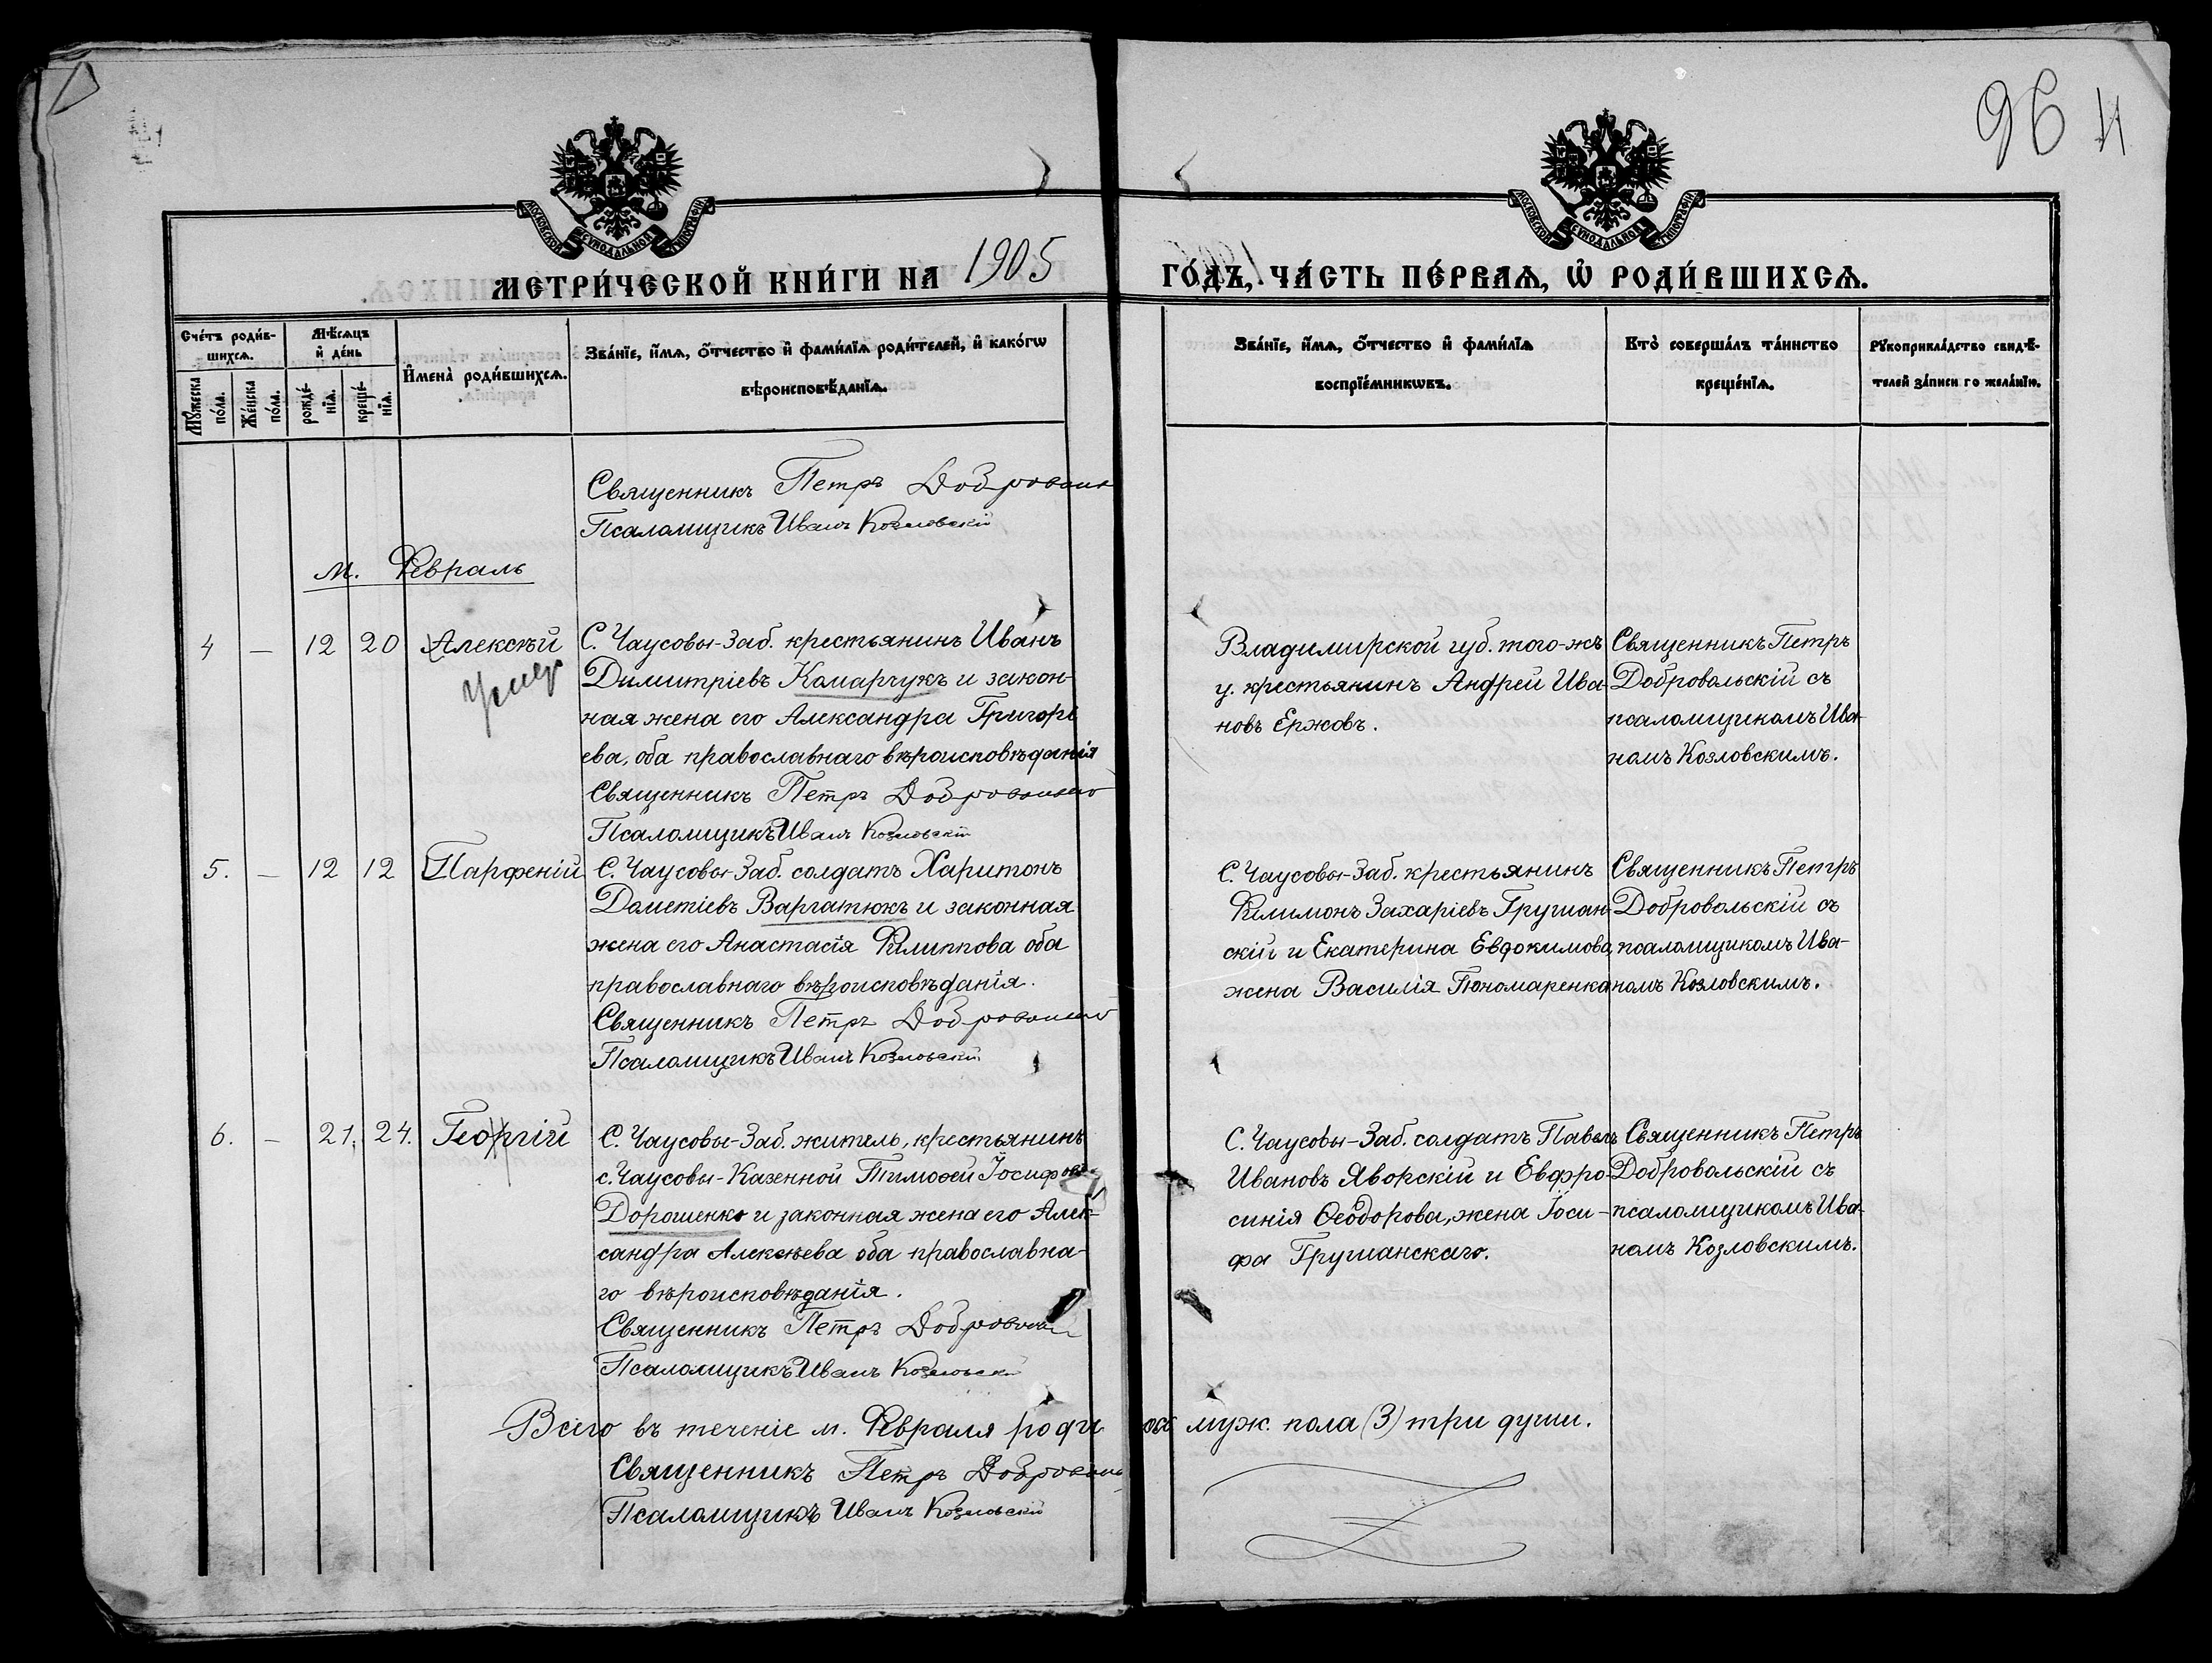 96 4
МОСКОВСКОЙ СѴНОДАЛЬНОЙ ТИПОГРАФІИ
МОСКОВСКОЙ СѴНОДАЛЬНОЙ ТИПОГРАФІИ
МЕТРИ́ЧЕСКОЙ КНИ́ГИ НА 1905 ГО́ДЪ, ЧА́СТЬ ПЕ́РВАѦ, Ѡ҆ РОДИ́ВШИХСѦ.
Сче́тъ роди́в-
шихсѧ.
Мꙋ́жеска по́ла.
Же́нска по́ла.
Мѣ́сѧцъ
и҆ де́нь
рожде́-
нїѧ.
креще́-
нїѧ.
И҆мена̀ роди́вшихсѧ.
Зва́нїе, и҆́мѧ, ѻ҆́тчество и҆ фами́лїѧ роди́телей, и҆ како́гѡ
вѣроисповѣ́данїѧ.
Зва́нїе, и҆́мѧ, ѻ҆́тчество и҆ фами́лїѧ
воспрїе́мникѡвъ.
Кто̀ соверша́лъ та́инство
креще́нїѧ.
Рꙋкоприкла́дство свидѣ́-
телей за́писи по жела́нїю.
Священникъ Петръ
Псаломщикъ Иванъ Козловскій
м. Февраль
4 — 12 20 Алексѣй
Умер
С. Чаусовы-Заб. крестьянинъ Иванъ
Димитріевъ Камарчукъ и закон-
ная жена его Александра Григорь
ева, оба православнаго вѣроисповѣданія
Священникъ Петръ
Псаломщикъ Иванъ Козловскій
Владимирской губ. того-жъ
у. крестьянинъ Андрей Ива-
новъ Ержовъ.
Священникъ Петръ
Добровольскій съ
псаломщикомъ Ива-
номъ Козловскимъ.
5. — 12 12 Парфеній
С. Чаусовы-Заб. солдатъ Харитонъ
Дометіевъ Варгатюкъ и законная
жена его Анастасія Филиппова оба
православнаго вѣроисповѣданія.
Священникъ Петръ
Псаломщикъ Иванъ Козловскій
С. Чаусовы-Заб. крестьянинъ
Филимонъ Захаріевъ Грушан-
скій и Екатерина Евдокимова,
жена Василія Пономаренка
Священникъ Петръ
Добровольскій съ
псаломщикомъ Ива-
номъ Козловскимъ.
6. — 21. 24. Георгій
С. Чаусовы-Заб. житель, крестьянинъ
с. Чаусовы-Казенной Тимоѳей Іосифовъ
Дорошенко и законная жена его Алек-
сандра Алексѣева оба православна-
го вѣроисповѣданія.
Священникъ Петръ
Псаломщикъ Иванъ
С. Чаусовы-Заб. солдатъ Павелъ
Ивановъ Яворскій и Евфро-
синія Ѳеодорова, жена Іоси-
фа Грушанскаго.
Священникъ Петръ
Добровольскій съ
псаломщикомъ Ива-
номъ Козловскимъ.
Всего въ теченіе м. Февраля роди ось муж. пола (3) три души.
Священникъ Петръ
Псаломщикъ Иванъ Козловскій